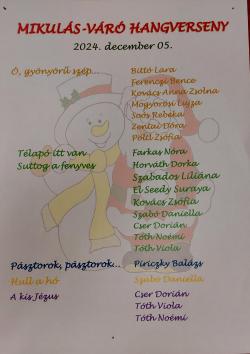 MIKULÁS-VÁRÓ HANGVERSENY
2024. december 05.
Ó, gyönyörű szép... Bittó Lara
Ferenczi Bence
Kovács Anna Zsolna
Mogyorósi Lujza
Soós Rebeka
Zentai Dóra
Pölti Zsófia
Télapó itt van Farkas Nóra
Suttog a fenyves Horváth Dorka
Szabados Liliána
El Seedy Suraya
Kovács Zsófia
Szabó Daniella
Cser Dorián
Tóth Noémi
Tóth Viola
Pásztorok, pásztorok... Piriczky Balázs
Hull a hó Szabó Daniella
A kis Jézus Cser Dorián
Tóth Viola
Tóth Noémi